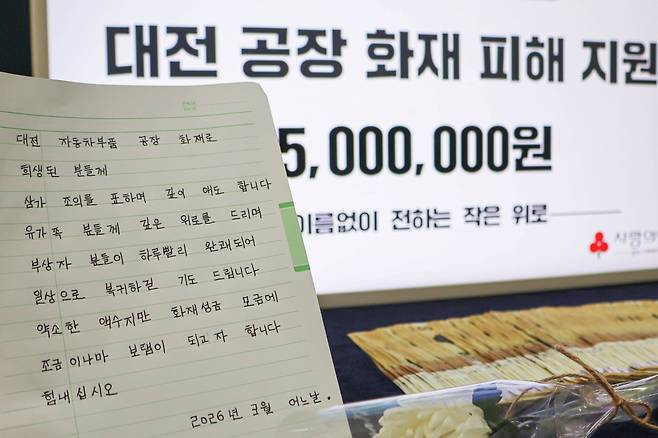 대전 공장 화재 피해 지원
5,000,000원
이름없이 전하는 작은 위로
대전 자동차부품 공장 화재로
희생된 분들께
삼가 조의를 표하며 깊이 애도 합니다
유가족 분들께 깊은 위로를 드리며
부상자 분들이 하루빨리 완쾌되어
일상으로 복귀하길 기도 드립니다
약소한 액수지만 화재성금 모금에
조금이나마 보탬이 되고자 합니다
힘내십시오
2026년 3월 어느날.